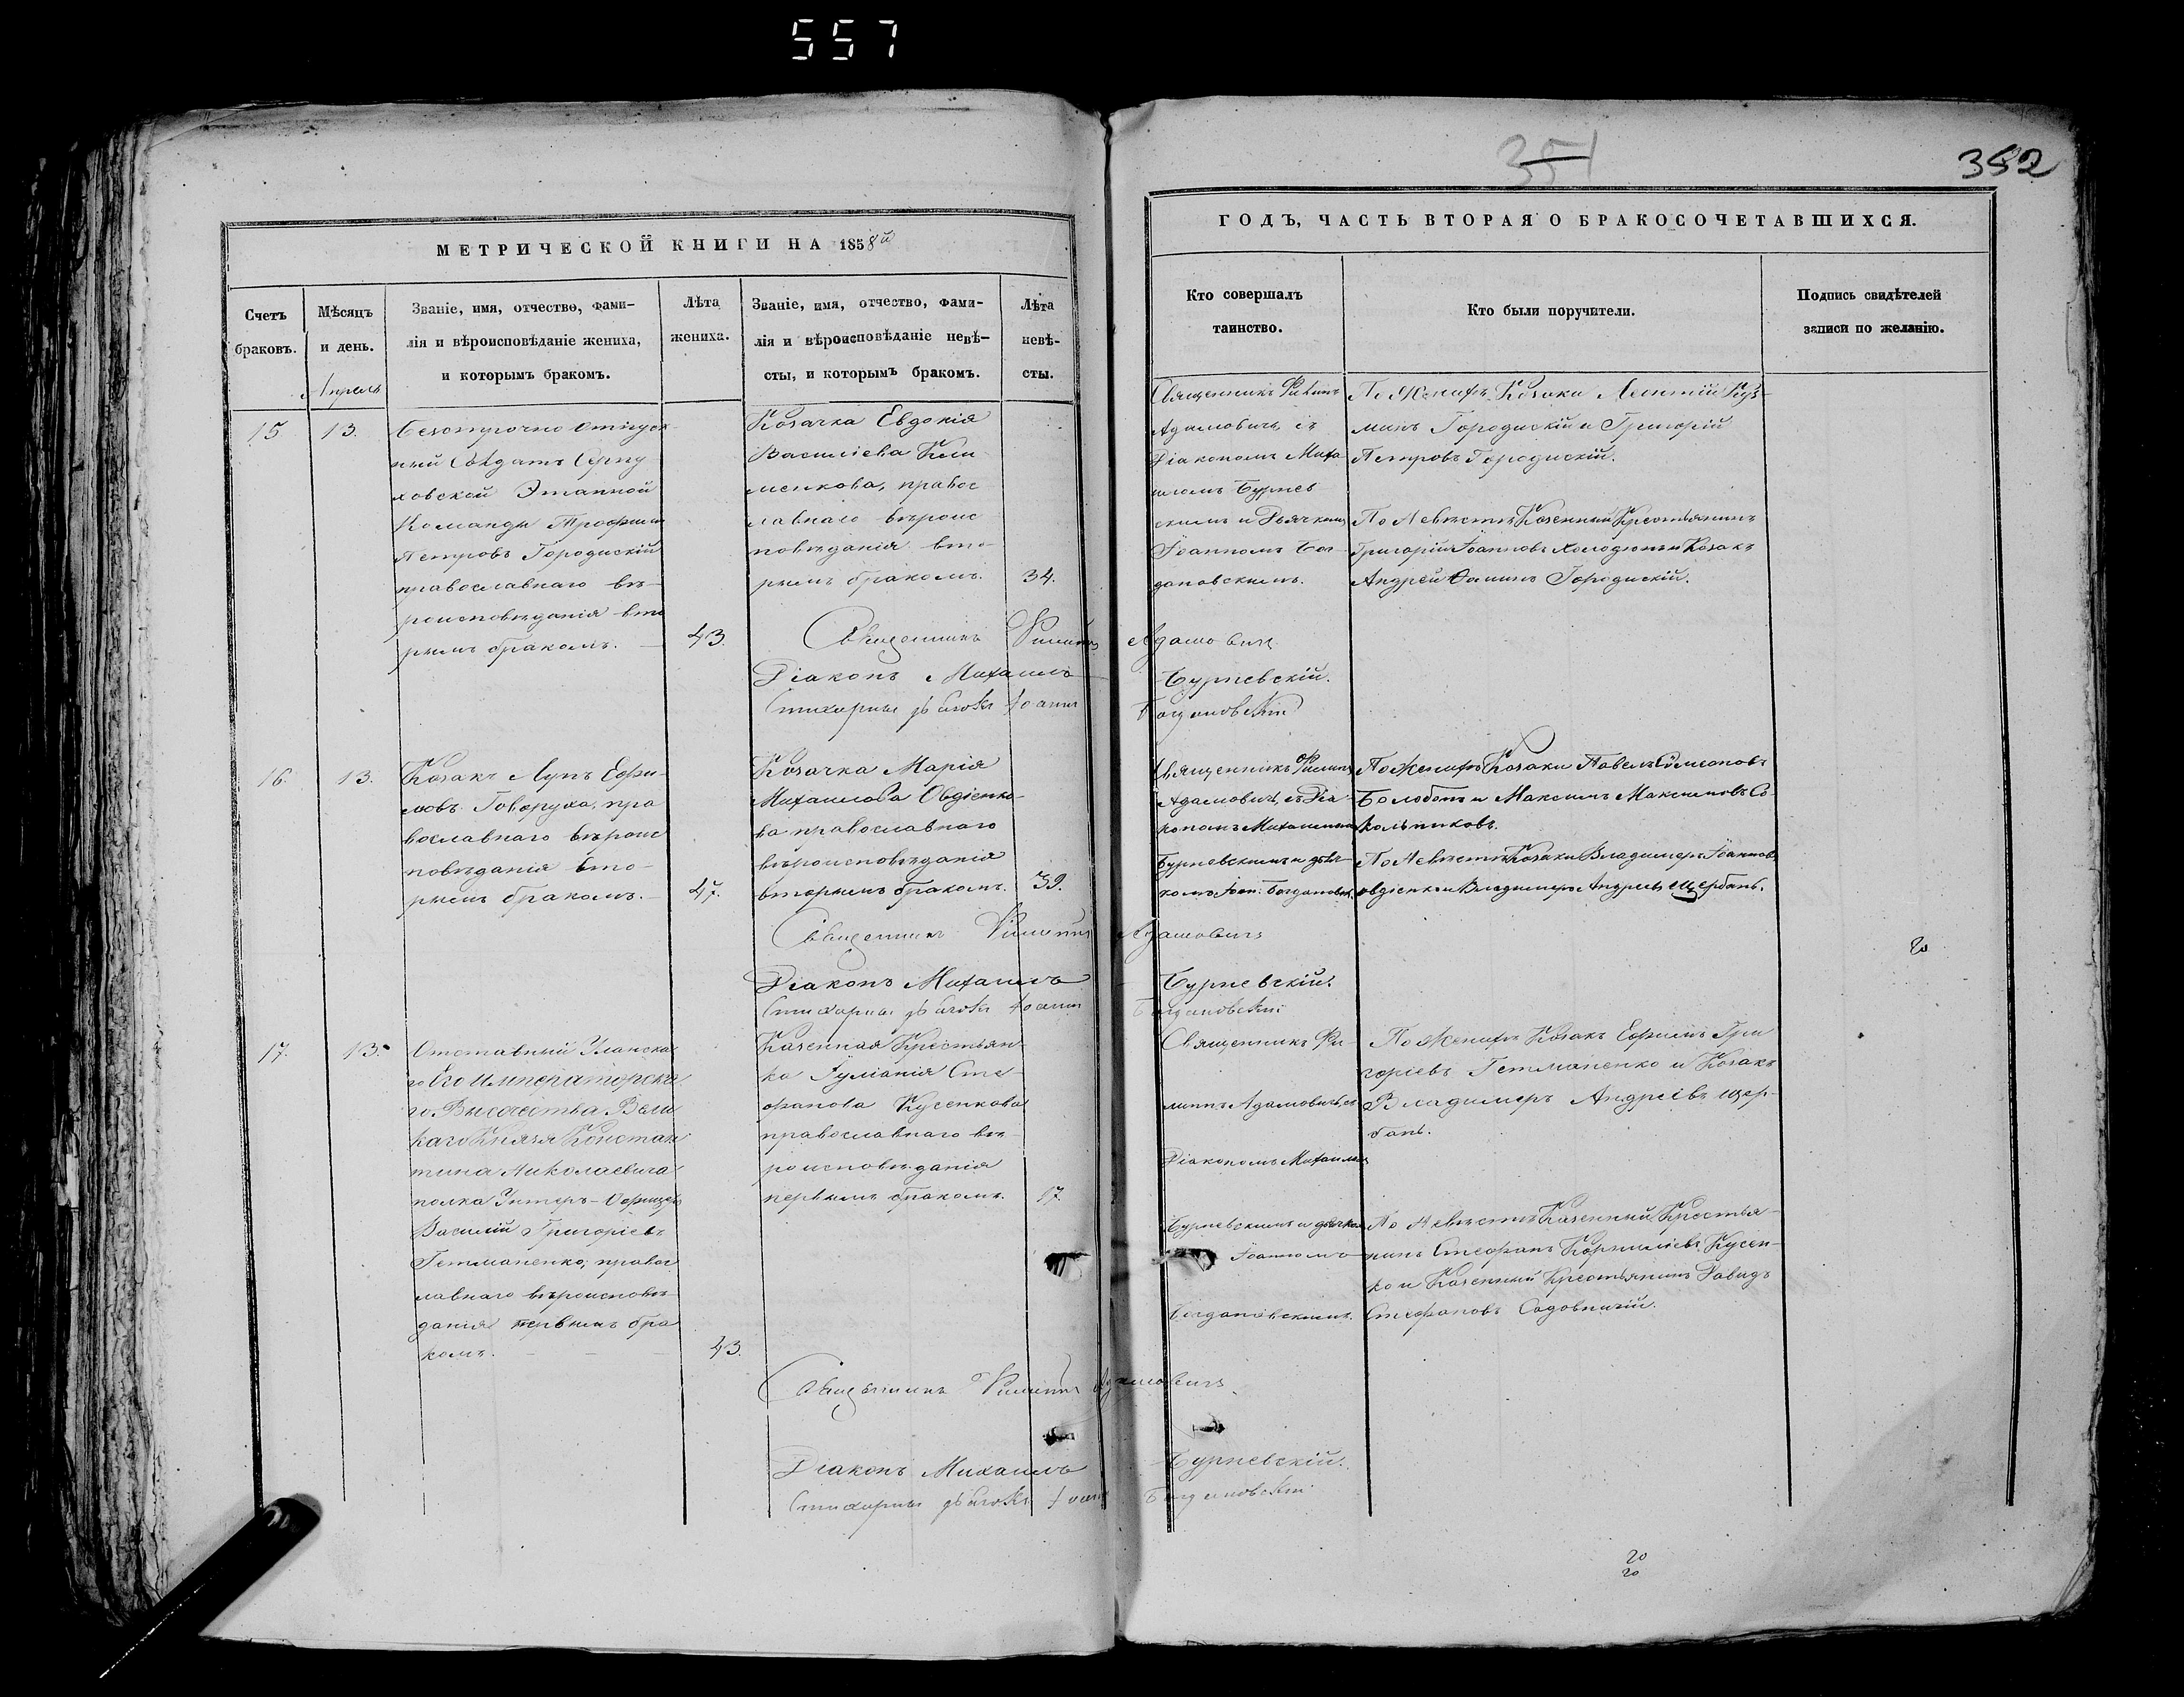 557
351
352
МЕТРИЧЕСКОЙ КНИГИ НА 1858й
ГОДЪ, ЧАСТЬ ВТОРАЯ О БРАКОСОЧЕТАВШИХСЯ.
Счетъ
браковъ.
Мѣсяцъ
и день.
Званіе, имя, отчество, фами-
лія и вѣроисповѣданіе жениха,
и которымъ бракомъ.
Лѣта
жениха.
Званіе, имя, отчество, фами-
лія и вѣроисповѣданіе невѣ-
сты, и которымъ бракомъ.
Лѣта
невѣ-
сты.
Кто совершалъ
таинство.
Кто были поручители.
Подпись свидѣтелей
записи по желанію.
Апрель
15
13.
Безсрочно отпуск
ный Солдатъ Серпу
ховской Этапной
Команды Трофим
Петровъ Городискій
православнаго вѣ-
роисповѣданія вто
рымъ бракомъ. —
43.
Козачка Евдокія
Василіева Кли
менкова, правос
лавнаго вѣроис
повѣданія вто-
рымъ бракомъ.
34.
Священникъ Филиппъ
Адамовичъ съ
Діакономъ Миха
иломъ Бурнев
скимъ и Дьячкомъ
Іоанномъ Бог-
дановскимъ.
По Женихѣ Козаки Леонтій Куз-
минъ Городискій и Григорій
Петровъ Городискій.
По Невѣстѣ Казенный Крестьянинъ
Григорій Іоанновъ Холодюкъ и Козакъ
Андрей Ѳоминъ Городискій.
Священникъ Филиппъ Адамовичъ
Діаконъ Михаилъ Бурневскій.
Стихарный дьячокъ Іоаннъ Богдановскій
16.
13.
Козакъ Лупъ Ефи-
мовъ Говоруха, пра
вославнаго вѣроис
повѣданія вто-
рымъ бракомъ. —
47.
Козачка Марія
Михаилова Овдіенко-
ва православнаго
вѣроисповѣданія
вторымъ бракомъ.
39.
Священникъ Филиппъ
Адамовичъ, съ Діа-
кономъ Михаиломъ
Бурневскимъ и дьяч-
комъ Іоан: Богдановск.
По Женихѣ Козаки Павелъ Симеоновъ
Болобанъ и Максимъ Максимовъ Со-
кольниковъ.
По Невѣстѣ Козаки Владимеръ Іоанновъ
Овдіенко и Владимеръ Андреевъ Щербань.
Священникъ Филиппъ Адамовичъ
Діаконъ Михаилъ Бурневскій.
Стихарный дьячокъ Іоаннъ Богдановскій
17.
13.
Отставный Уланска
го Его Императорска
го Высочества Вели
каго Князя Констан
тина Николаевича
полка Унтеръ-Офицеръ
Василій Григоріевъ
Гетманенко, правос
лавнаго вѣроисповѣ
данія первымъ бра
комъ. — — —
43.
Казенная Крестьян-
ка Іуліанія Сте-
фанова Кусенкова
православнаго вѣ-
роисповѣданія
первымъ бракомъ.
17.
Священникъ Фи-
липпъ Адамовичъ, съ
Діакономъ Михаиломъ
Бурневскимъ и дьячком
Іоанномъ
Богдановскимъ.
По Женихѣ Козакъ Ефимъ Гри
горіевъ Гетманенко и Козакъ
Владимеръ Андреевъ Щер-
бань.
По Невѣстѣ Казенный Крестья-
нинъ Стефанъ Корниліевъ Кусен-
ко и Казенный Крестьянинъ Давидъ
Стефановъ Садовничій.
Священникъ Филиппъ Адамовичъ
Діаконъ Михаилъ Бурневскій.
Стихарный дьячокъ Іоаннъ Богдановскій